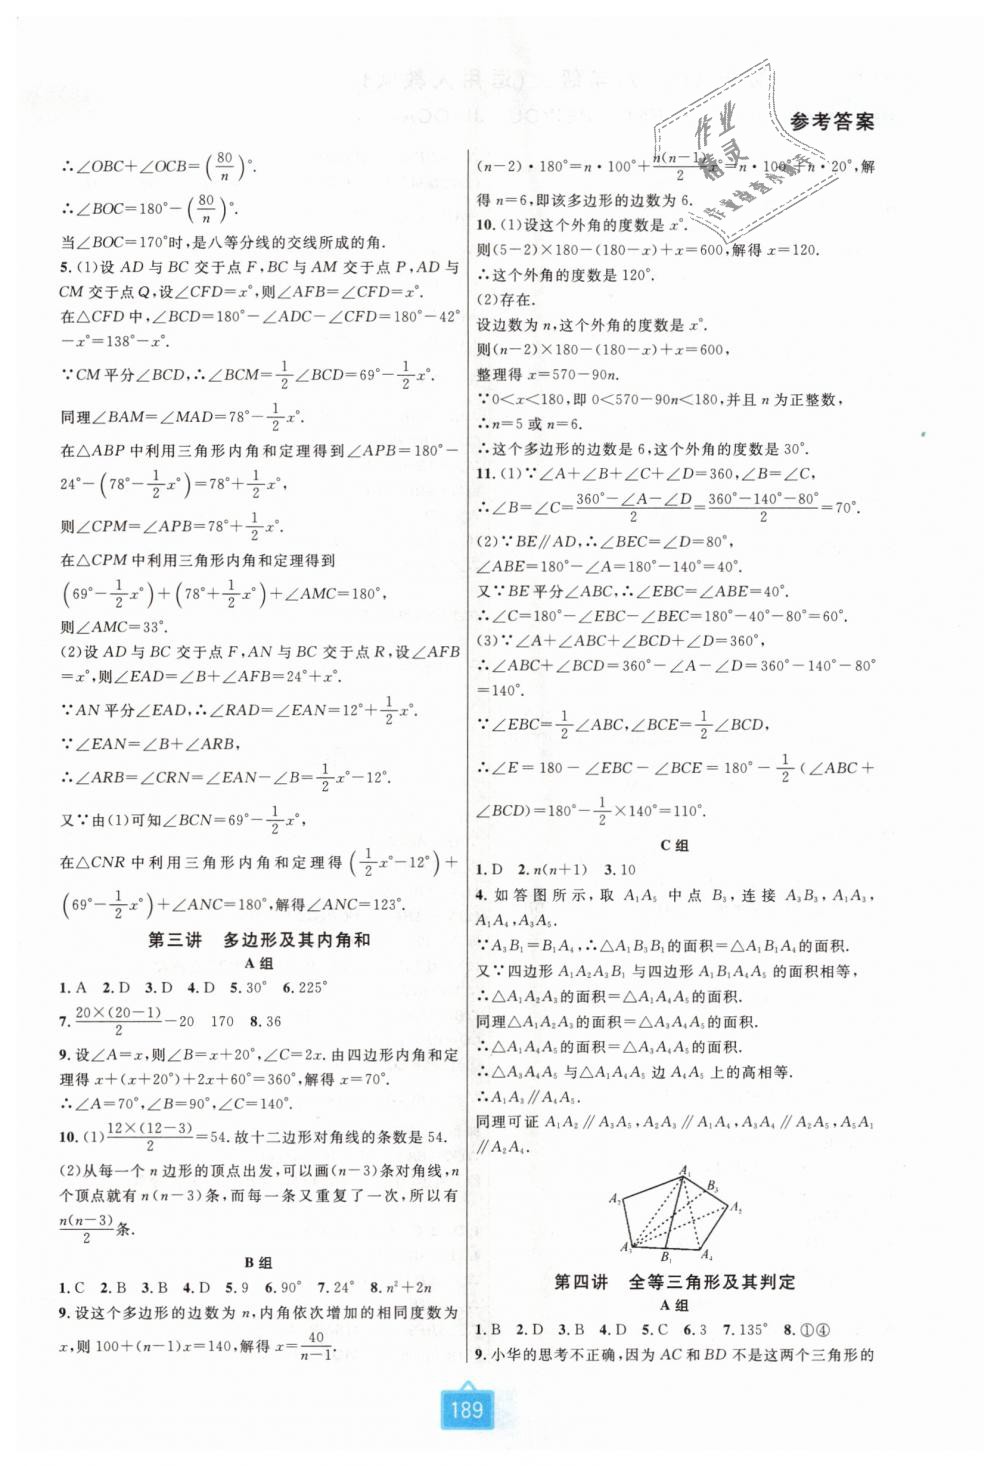 参考答案
∴∠OBC+∠OCB=(80/n)°.
∴∠BOC=180°-(80/n)°.
当∠BOC=170°时,是八等分线的交线所成的角.
5.(1)设 AD 与 BC 交于点 F,BC 与 AM 交于点 P,AD 与
CM 交于点 Q,设∠CFD=x°,则∠AFB=∠CFD=x°.
在△CFD 中,∠BCD=180°-∠ADC-∠CFD=180°-42°
-x°=138°-x°.
∵CM 平分∠BCD,∴∠BCM=1/2∠BCD=69°-1/2x°.
同理∠BAM=∠MAD=78°-1/2x°.
在△ABP 中利用三角形内角和定理得到∠APB=180°-
24°-(78°-1/2x°)=78°+1/2x°,
则∠CPM=∠APB=78°+1/2x°.
在△CPM 中利用三角形内角和定理得到
(69°-1/2x°)+(78°+1/2x°)+∠AMC=180°,
则∠AMC=33°.
(2)设 AD 与 BC 交于点 F,AN 与 BC 交于点 R,设∠AFB
=x°,则∠EAD=∠B+∠AFB=24°+x°.
∵AN 平分∠EAD,∴∠RAD=∠EAN=12°+1/2x°.
∵∠EAN=∠B+∠ARB,
∴∠ARB=∠CRN=∠EAN-∠B=1/2x°-12°.
又∵由(1)可知∠BCN=69°-1/2x°,
在△CNR 中利用三角形内角和定理得(1/2x°-12°)+
(69°-1/2x°)+∠ANC=180°,解得∠ANC=123°.
第三讲 多边形及其内角和
A 组
1. A 2. D 3. D 4. D 5. 30° 6. 225°
7. 20×(20-1)/2-20 170 8. 36
9. 设∠A=x,则∠B=x+20°,∠C=2x. 由四边形内角和定
理得 x+(x+20°)+2x+60°=360°,解得 x=70°.
∴∠A=70°,∠B=90°,∠C=140°.
10.(1)12×(12-3)/2=54. 故十二边形对角线的条数是 54.
(2)从每一个 n 边形的顶点出发,可以画(n-3)条对角线,n
个顶点就有 n(n-3)条,而每一条又重复了一次,所以有
n(n-3)/2条.
B 组
1. C 2. B 3. B 4. D 5. 9 6. 90° 7. 24° 8. n²+2n
9. 设这个多边形的边数为 n,内角依次增加的相同度数为
x,则 100+(n-1)x=140,解得 x=40/n-1.
(n-2)·180°=n·100°+n(n-1)/2·x°=n·100°+n·20°,解
得 n=6,即该多边形的边数为 6.
10.(1)设这个外角的度数是 x°.
则(5-2)×180-(180-x)+x=600,解得 x=120.
∴这个外角的度数是 120°.
(2)存在.
设边数为 n,这个外角的度数是 x°.
则(n-2)×180-(180-x)+x=600,
整理得 x=570-90n.
∵0<x<180,即 0<570-90n<180,并且 n 为正整数,
∴n=5 或 n=6.
∴这个多边形的边数是 6,这个外角的度数是 30°.
11.(1)∵∠A+∠B+∠C+∠D=360,∠B=∠C,
∴∠B=∠C=360°-∠A-∠D/2=360°-140°-80°/2=70°.
(2)∵BE∥AD,∴∠BEC=∠D=80°,
∠ABE=180°-∠A=180°-140°=40°.
又∵BE 平分∠ABC,∴∠EBC=∠ABE=40°.
∴∠C=180°-∠EBC-∠BEC=180°-40°-80°=60°.
(3)∵∠A+∠ABC+∠BCD+∠D=360°,
∴∠ABC+∠BCD=360°-∠A-∠D=360°-140°-80°
=140°.
∵∠EBC=1/2∠ABC,∠BCE=1/2∠BCD,
∴∠E=180-∠EBC-∠BCE=180°-1/2(∠ABC+
∠BCD)=180°-1/2×140°=110°.
C 组
1. D 2. n(n+1) 3. 10
4. 如答图所示,取 A₁A₅ 中点 B₃,连接 A₃B₃,A₁A₃,
A₁A₄,A₃A₅.
∵A₃B₁=B₁A₄,∴△A₁B₃B₁的面积=△A₁B₁A₄的面积.
又∵四边形 A₁A₂A₃B₁ 与四边形 A₁B₁A₄A₅ 的面积相等,
∴△A₁A₂A₃的面积=△A₁A₄A₅的面积.
同理△A₁A₂A₃的面积=△A₃A₄A₅的面积.
∴△A₁A₄A₅的面积=△A₃A₄A₅的面积.
∴△A₃A₄A₅ 与△A₁A₄A₅ 边 A₄A₅ 上的高相等.
∴A₁A₃∥A₄A₅.
同理可证 A₁A₂∥A₃A₅,A₂A₃∥A₁A₄,A₃A₄∥A₂A₅,A₅A₁
∥A₂A₄.
A₁
B₃
A₂
A₅
A₃
B₁
A₄
第四讲 全等三角形及其判定
A 组
1. B 2. D 3. B 4. D 5. C 6. 3 7. 135° 8. ①④
9. 小华的思考不正确,因为 AC 和 BD 不是这两个三角形的
189
作业
精灵